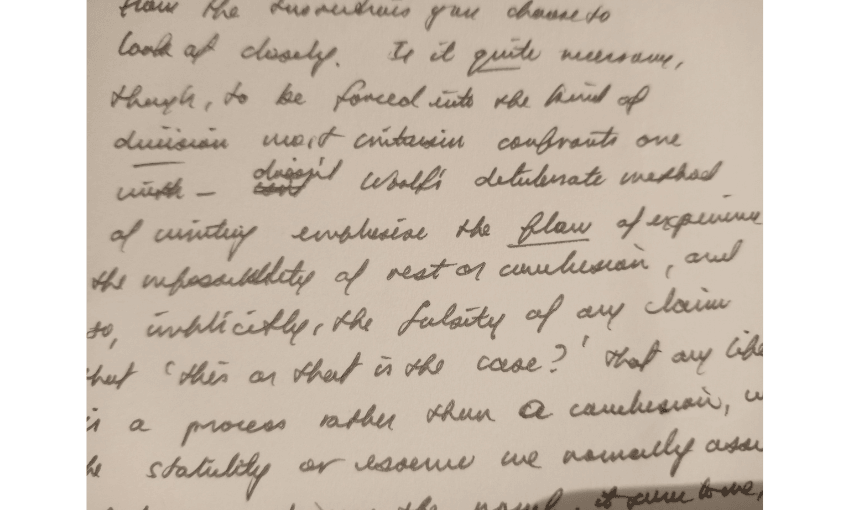 from the                you choose to
look at closely. Is it quite necessary,
though, to be forced into the kind of
division most criticism confronts one
with – doesn't Woolf's deliberate method
of writing emphasise the flow of experience
the impossibility of rest or conclusion, and
so, implicitly, the falsity of any claim
that 'this or that is the case?' that any life
is a process rather than a conclusion,
the stability or essence we normally
the novel, it seems to me,